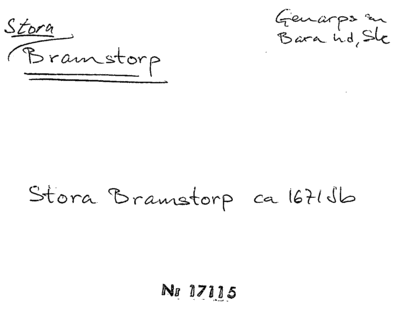 Stora
Bramstorp
Genarps sn
Bara hd, Sk
Stora Bramstorp ca 1671 Jb
Nr 17115